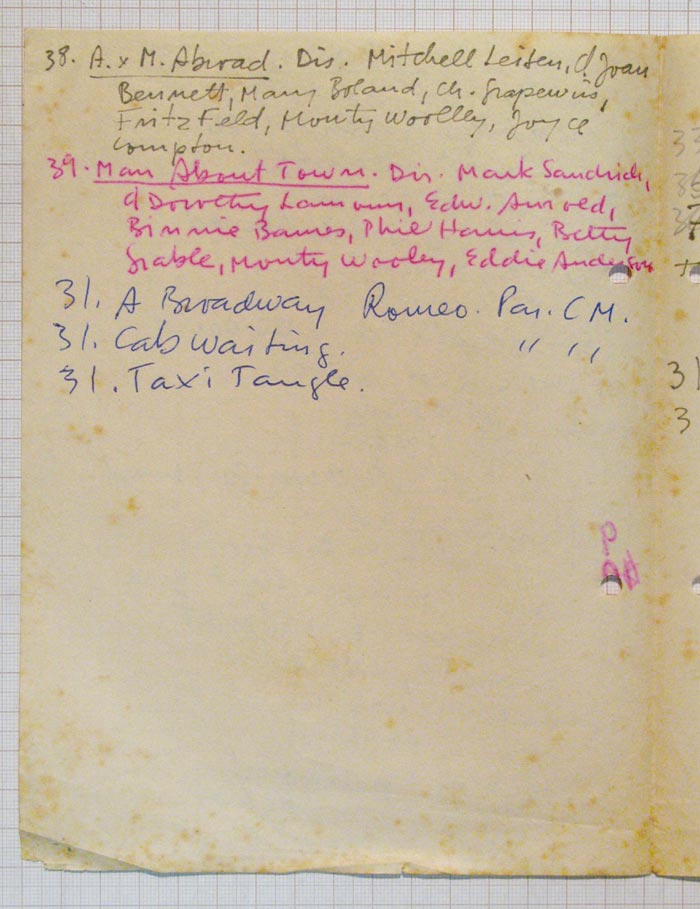 38. A. x M. Abroad. Dis. Mitchell Leisen, d/Joan
Bennett, Mary Boland, Ch. Grapewin,
Fritz Feld, Monty Woolley, Joyce
Compton.
39. Man About Town. Dir. Mark Sandrich,
d Dorothy Lamour, Edw. Arnold,
Binnie Barnes, Phil Harris, Betty
Grable, Monty Wooley, Eddie Anderson
31. A Broadway Romeo. Par. C M.
31. Cab Waiting. " "
31. Taxi Tangle.
P
31
3